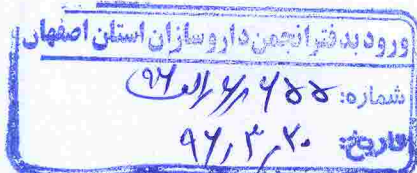 ورود بدفتر انجمن داروسازان استان اصفهان
شماره: ۶۵۵
تاریخ: ۹۶٫۳٫۲۰